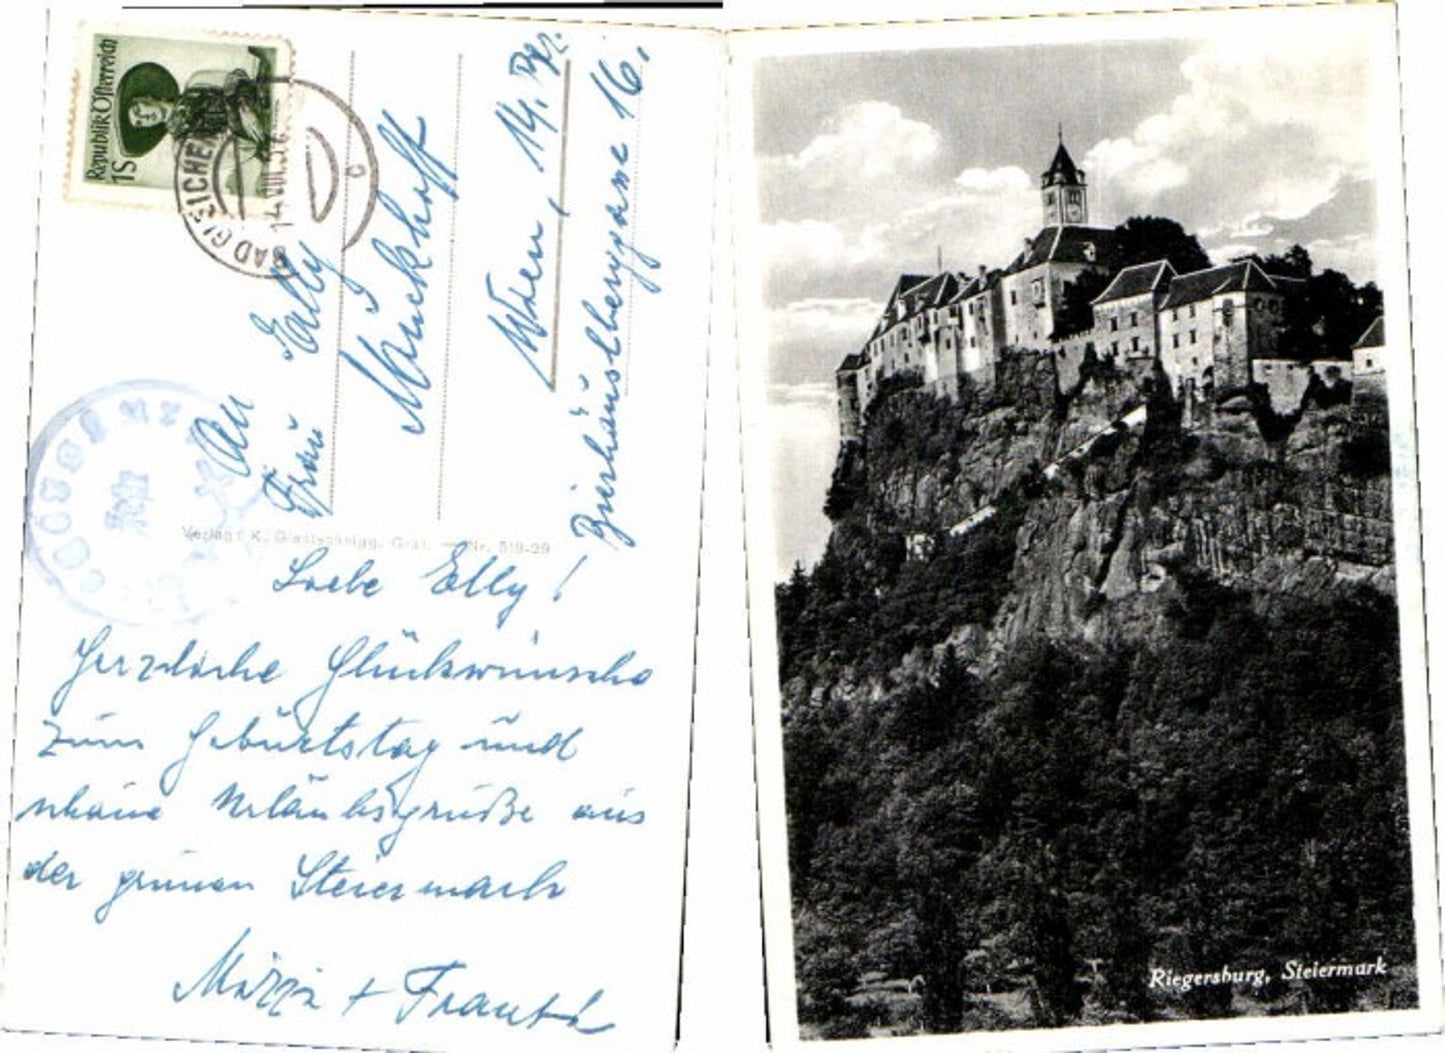 Republik Österreich
1S
BAD GLEICHE
C
An
Frau Elly
Mauckhoff
Wien, 14. Bez.
Bierhäuslberggasse 16.
Verlag: K. Glantschnigg, Graz — Nr. 519-29
Liebe Elly!
Herzliche Glückwünsche
zum Geburtstag und
schöne Urlaubsgrüße aus
der grünen Steiermark
Mizzi + Frantl
Riegersburg, Steiermark